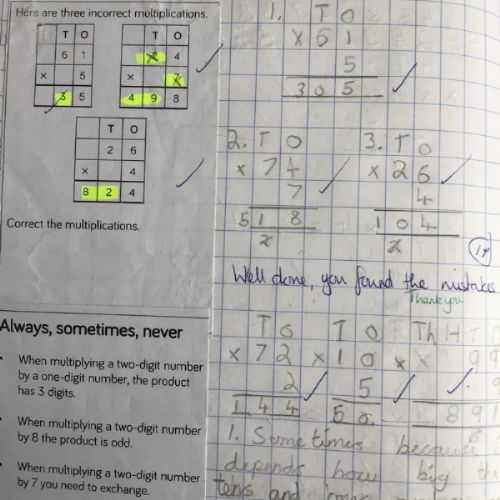 Here are three incorrect multiplications.
T O
6 1
× 5
3 5
T O
4
×
4 9 8
T O
2 6
× 4
8 2 4
Correct the multiplications.
Always, sometimes, never
When multiplying a two-digit number
by a one-digit number, the product
has 3 digits.
When multiplying a two-digit number
by 8 the product is odd.
When multiplying a two-digit number
by 7 you need to exchange.
1. T O
× 6 1
5
3 0 5
2. T O
× 7 4
7
5 1 8
2
3. T O
× 2 6
4
1 0 4
2
Well done, you found the mistakes
Thank you
T O
× 7 2
2
1 4 4
T O
× 1 0
5
5 0
Th H T
× 9 9
8 9 1
1. Sometimes because
depends how big the
tens and